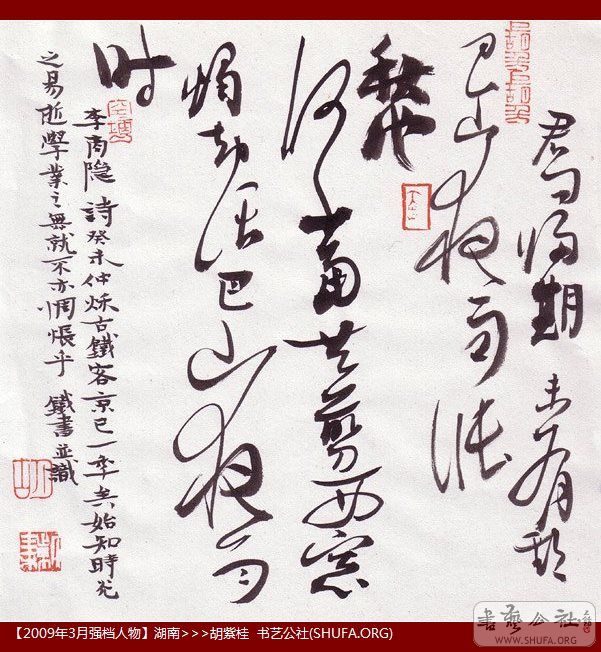 君问归期未有期
巴山夜雨涨
秋池
何當共剪西窓
燭却话巴山夜雨
时
李商隐詩癸未仲秌古鐵客京已一年矣始知時光
之易逝學業之無就不亦惆悵乎 鐵書並識
書藝公社
WWW.SHUFA.ORG
【2009年3月强档人物】湖南>>>胡紫桂 书艺公社(SHUFA.ORG)